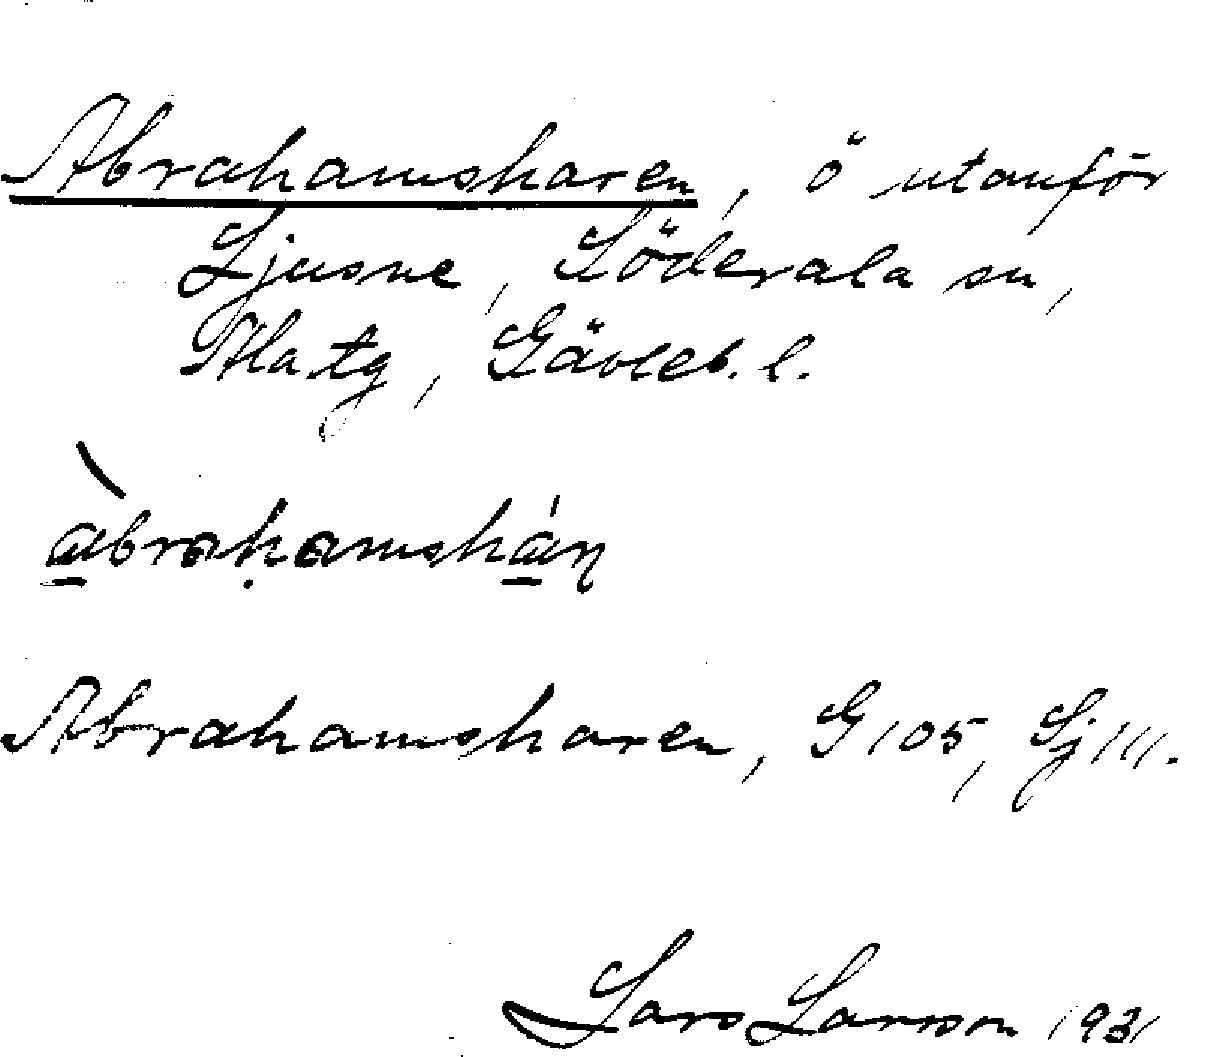 Abrahamsharen, ö utanför
Ljusne, Söderala sn,
Ala tg, Gävleb. l.
àbrahamshán
Abrahamsharen, G 105, Sj 111.
Lars Larsson 1931